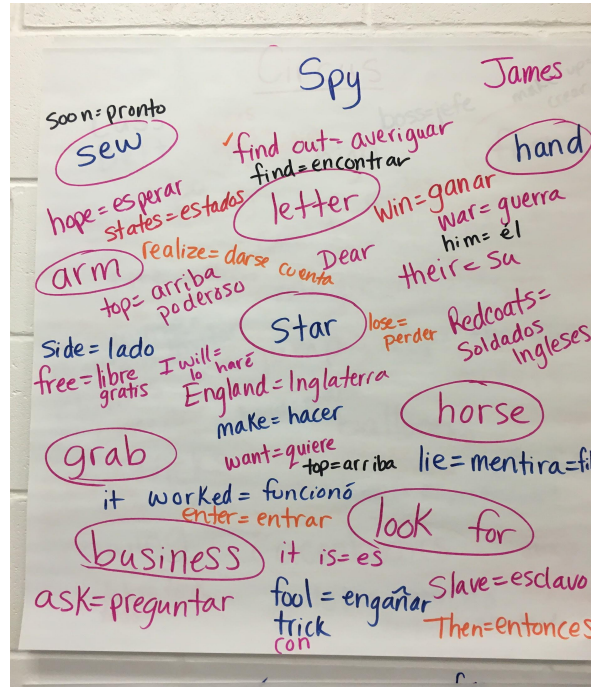 Spy
James
soon=pronto
sew
✓find out=averiguar
find=encontrar
hand
hope=esperar
states=estados
letter
win=ganar
war=guerra
him=él
their=su
arm
realize=darse cuenta
Dear
top=arriba
poderoso
star
lose=
perder
Redcoats=
Soldados
Ingleses
side=lado
free=libre
gratis
I will=
lo haré
England=Inglaterra
make=hacer
horse
grab
want=quiere
top=arriba
lie=mentira=fi
it worked=funcionó
enter=entrar
look for
business
it is=es
ask=preguntar
fool=engañar
trick
con
Slave=esclavo
Then=entonces